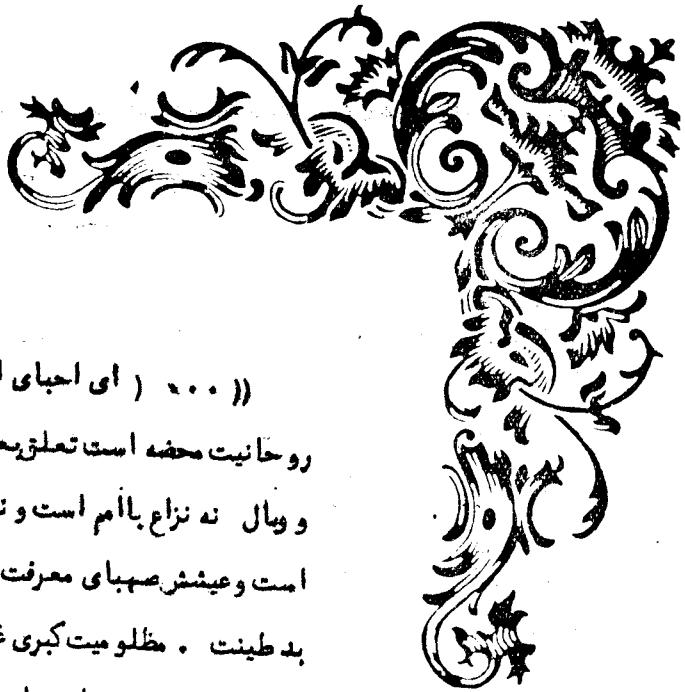 (( ۰۰ × ( ای احبای ا
روحانیت محضه است تعلق بعا
و وبال نه نزاع باأمم است و ن
است و عیشش صهبای معرفت
بد طینت . مظلومیت کبری غ